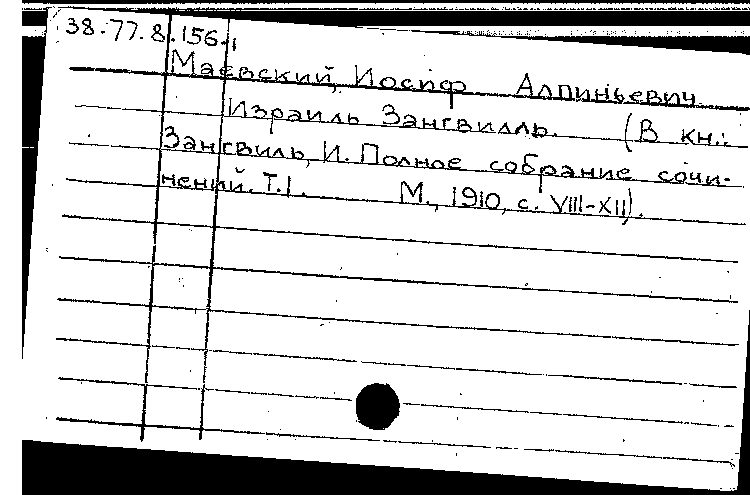 38.77.8.156.1
Маевский, Иосиф Алпиньевич
Израиль Зангвилль. (В кн.:
Зангвиль, И. Полное собрание сочи-
нений. Т.I. М., 1910, с. VIII-XII).